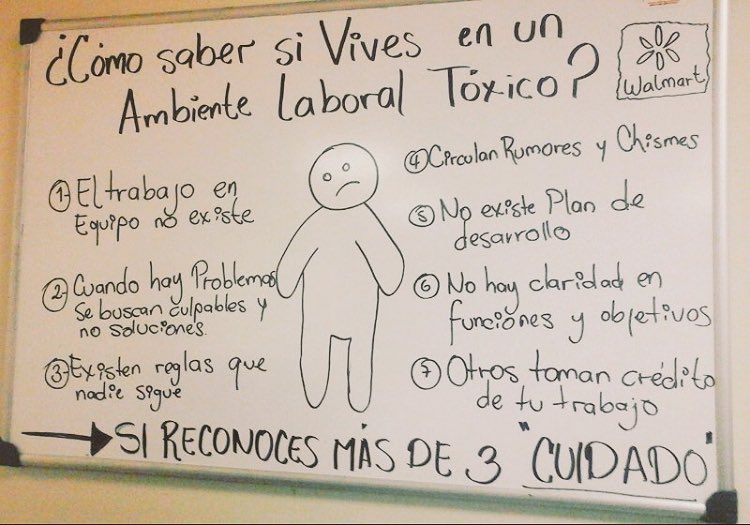 ¿Cómo saber si Vives en un
Ambiente Laboral Tóxico?
Walmart
① El trabajo en
Equipo no existe
② Cuando hay Problemas
se buscan culpables y
no soluciones.
③ Existen reglas que
nadie sigue
④ Circulan Rumores y Chismes
⑤ No existe Plan de
desarrollo
⑥ No hay claridad en
funciones y objetivos
⑦ Otros toman crédito
de tu trabajo
→ SI RECONOCES MÁS DE 3 "CUIDADO"